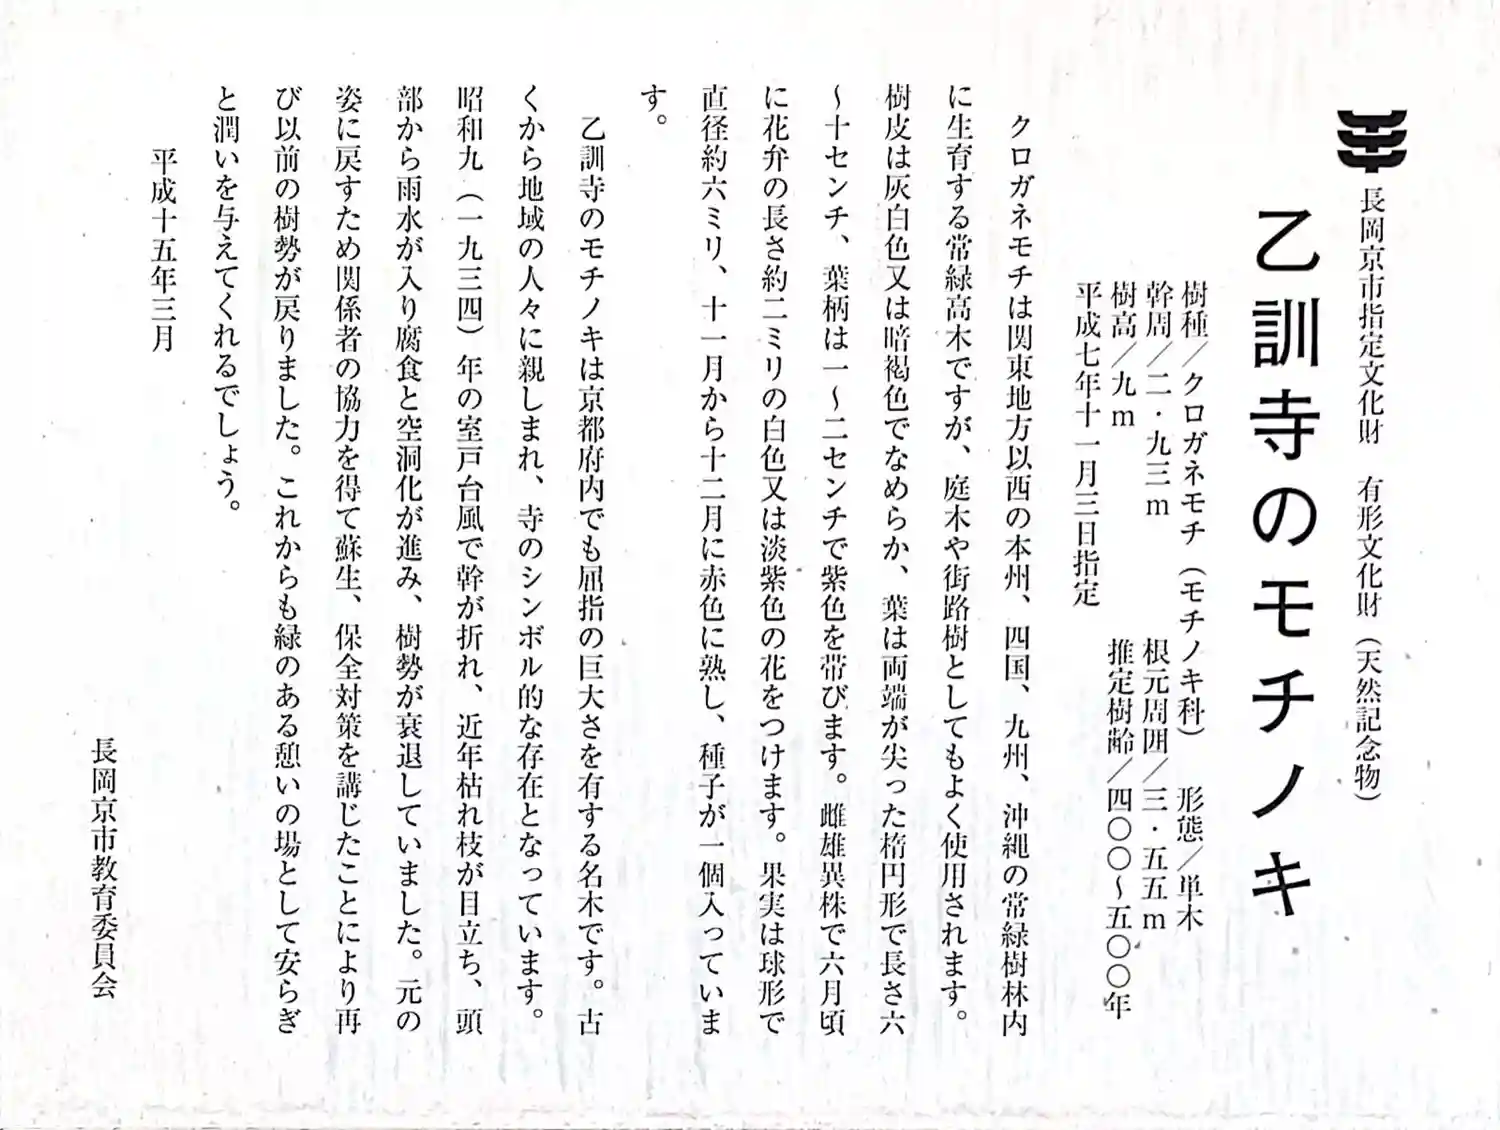 長岡京市指定文化財　有形文化財（天然記念物）
乙訓寺のモチノキ
樹種／クロガネモチ（モチノキ科）　形態／単木
幹周／二・九三ｍ　根元周囲／三・五五ｍ
樹高／九ｍ　推定樹齢／四〇〇～五〇〇年
平成七年十一月三日指定
クロガネモチは関東地方以西の本州、四国、九州、沖縄の常緑樹林内
に生育する常緑高木ですが、庭木や街路樹としてもよく使用されます。
樹皮は灰白色又は暗褐色でなめらか、葉は両端が尖った楕円形で長さ六
～十センチ、葉柄は一～二センチで紫色を帯びます。雌雄異株で六月頃
に花弁の長さ約二ミリの白色又は淡紫色の花をつけます。果実は球形で
直径約六ミリ、十一月から十二月に赤色に熟し、種子が一個入っていま
す。
乙訓寺のモチノキは京都府内でも屈指の巨大さを有する名木です。古
くから地域の人々に親しまれ、寺のシンボル的な存在となっています。
昭和九（一九三四）年の室戸台風で幹が折れ、近年枯れ枝が目立ち、頭
部から雨水が入り腐食と空洞化が進み、樹勢が衰退していました。元の
姿に戻すため関係者の協力を得て蘇生、保全対策を講じたことにより再
び以前の樹勢が戻りました。これからも緑のある憩いの場として安らぎ
と潤いを与えてくれるでしょう。
平成十五年三月
長岡京市教育委員会